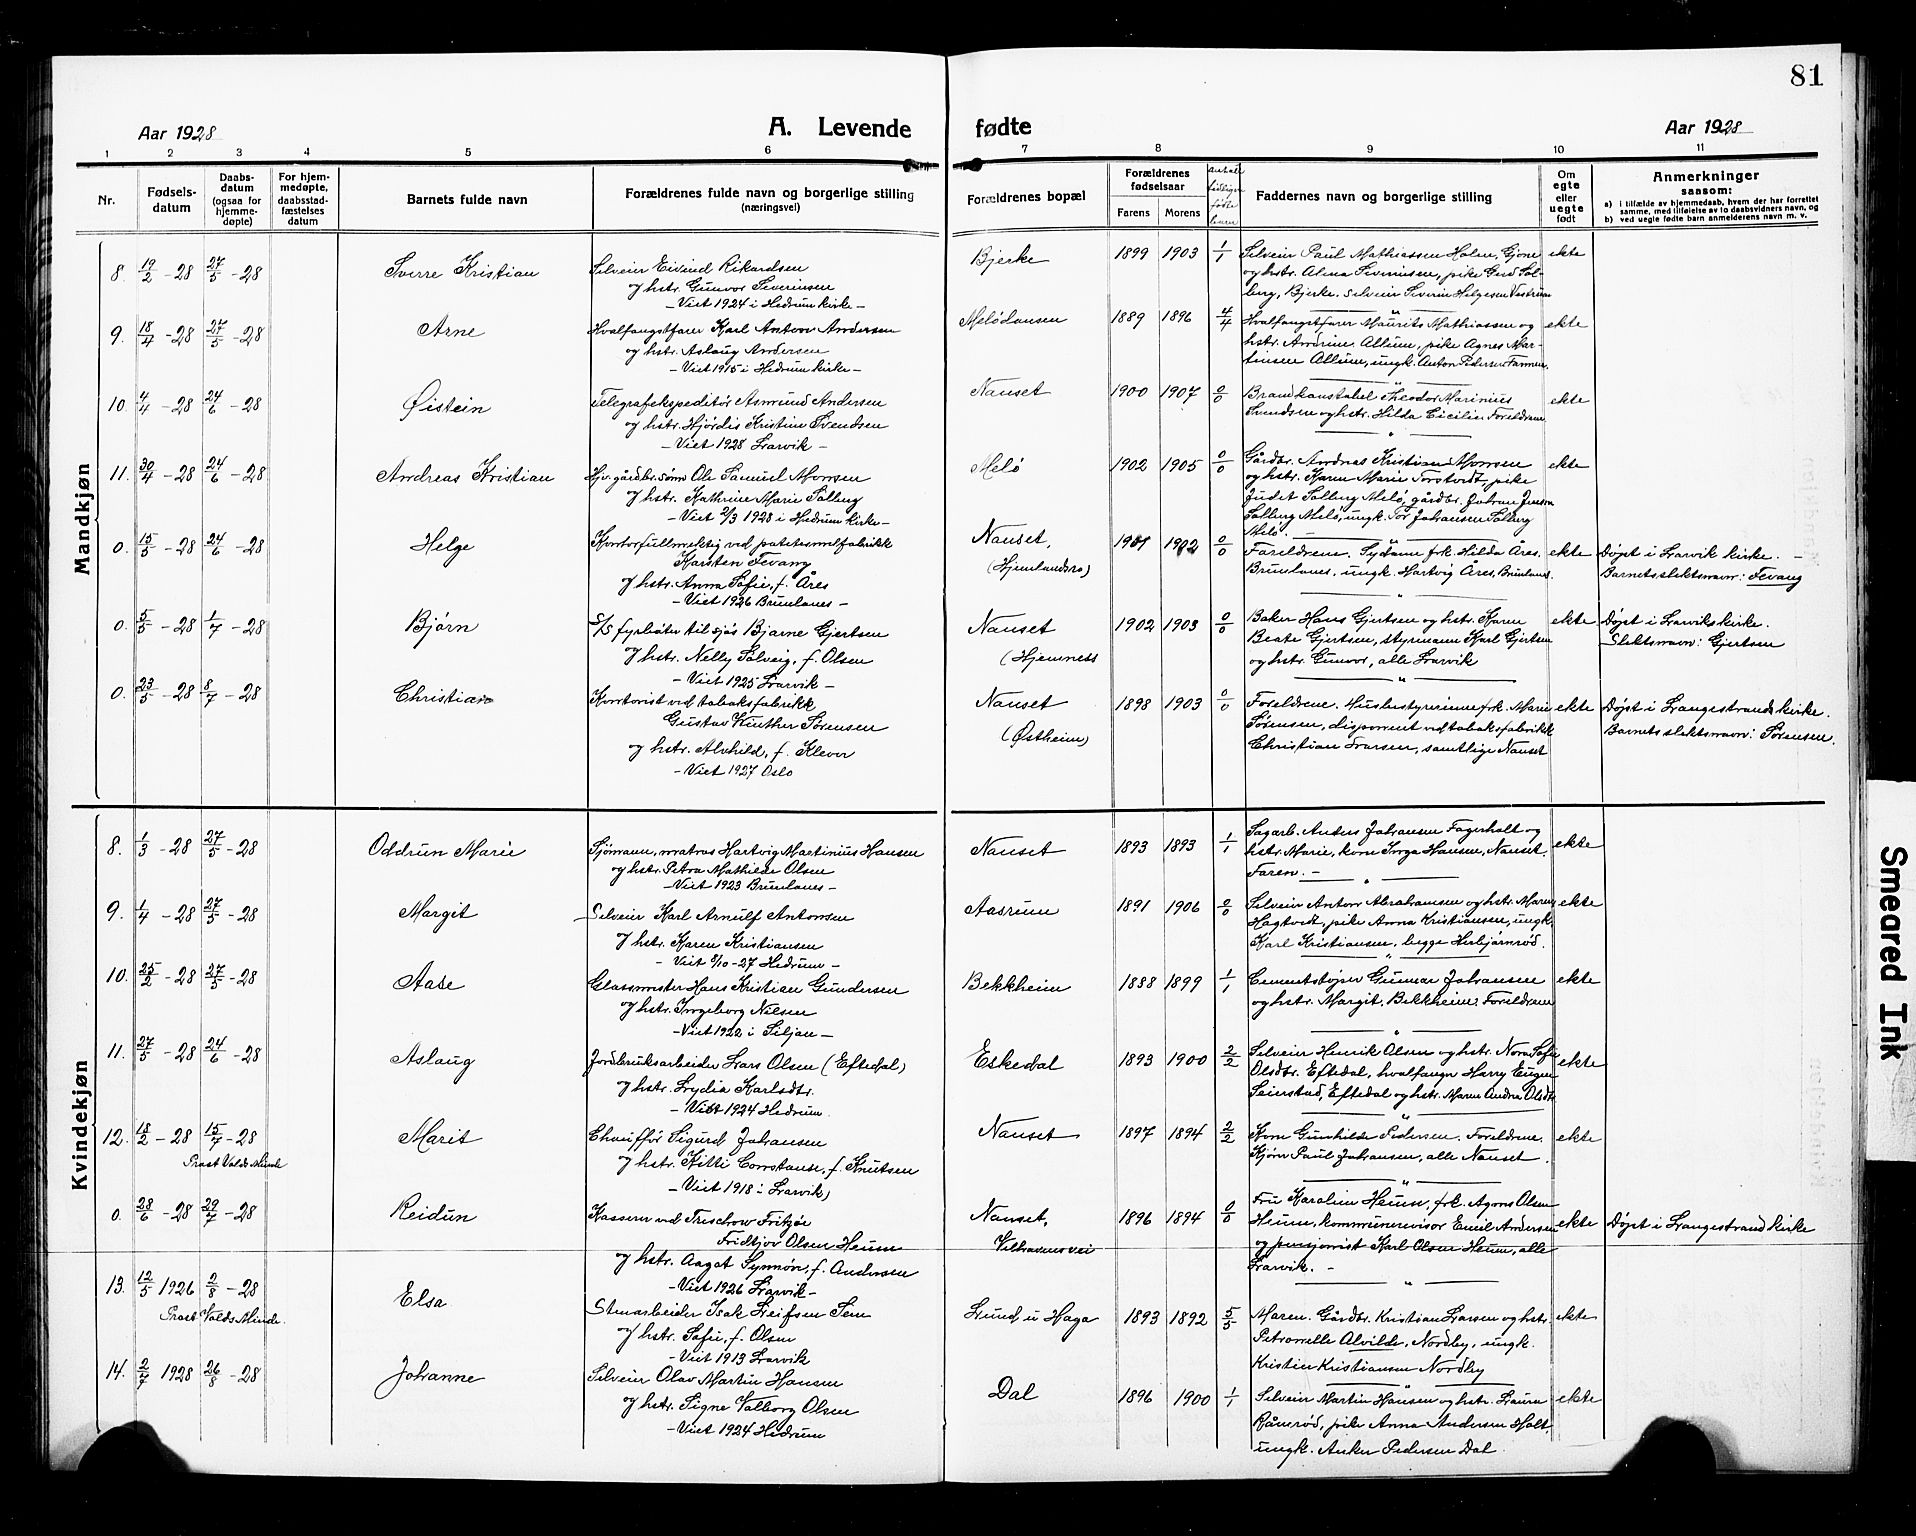 81
Aar 1928
A. Levende fødte
Aar 1928
1 2 3 4 5 6 7 8 9 10 11
Nr.
Fødsels-
datum
Daabs-
datum
(ogsaa for
hjemme-
døpte)
For hjem-
medøpte,
daabsstad-
fæstelses
datum
Barnets fulde navn
Forældrenes fulde navn og borgerlige stilling
(næringsvei)
Forældrenes bopæl
Forældrenes
fødselsaar
Farens Morens
Faddernes navn og borgerlige stilling
Om
egte
eller
uegte
født
Anmerkninger
saasom:
a) i tilfælde av hjemmedaab, hvem der har forrettet
samme, med tilføielse av to daabsvidners navn, og
b) ved uegte fødte barn anmelderens navn m. v.
Mandkjøn
8. 19/2 - 28 27/5 - 28 Sverre Kristian
Selveier Eivind Rikardsen
og hstr. Gunvor Severinsen
- Viet 1924 i Hedrum kirke -
Bjerke 1899 1903 1/1
Selveier Paul Mathiassen Holen, Gjone
og hstr. Alma Severinsen, pike Gerd Sol-
berg, Bjerke. Selveier Severin Helgesen Vestrum
ekte
9. 18/4 - 28 27/5 - 28 Arne
Hvalfangstfører Karl Anton Andersen
og hstr. Aslaug Andersen
- Viet 1915 i Hedrum kirke -
Melødansen 1889 1896 4/4
Hvalfangstfører Maurits Mathiassen og
hstr. Andrine Allum, pike Agnes Mar-
tinsen Allum, ungk. Anton Pedersen Farmen.
ekte
10. 4/4 - 28 24/6 - 28 Øistein
Telegrafekspeditør Asmund Andersen
og hstr. Hjørdis Kristine Svendsen
- Viet 1928 Larvik -
Nanset 1900 1907 0/0
Brandkonstabel Theodor Marinius
Svendsen og hstr. Hilda Cicilie. Foreldrene
ekte
11. 30/4 - 28 24/6 - 28 Andreas Kristian
Hjv. gårdbr. sønn Ole Samuel Momsen
og hstr. Kathrine Marie Solberg
- Viet 2/3 1928 i Hedrum kirke -
Melø 1902 1905 0/0
Gårdbr. Andreas Kristian Momsen
og hstr. Karen Marie Torstvedt, pike
Judet Solberg Melø, gårdbr. Johan Jensen
Solberg Melø, ungk. Tor Johansen Solberg
Melø.
ekte
0. 15/5 - 28 24/6 - 28 Helge
Kontorfullmektig ved potetmelfabrikk
Karsten Fevang
og hstr. Anna Sofie, f. Åres
- Viet 1926 Brunlanes -
Nanset,
(Hjemlandsro) 1901 1902 0/0
Foreldrene. Sydame frk. Hilda Åres,
Brunlanes, ungk. Hartvig Åres, Brunlanes.
ekte
Døpt i Larvik kirke. -
Barnets slektsnavn: Fevang
0. 5/5 - 28 1/7 - 28 Bjørn
S/S fyrbøter til sjøs Bjarne Gjertsen
og hstr. Nelly Solveig, f. Olsen
- Viet 1925 Larvik -
Nanset
(Hjemnets 1902 1903 0/0
Baker Hans Gjertsen og hstr. Karen
Beate Gjertsen, styrmann Karl Gjertsen
og hstr. Gunvor, alle Larvik
ekte
Døpt i Larviks kirke.
Slektsnavn: Gjertsen
0. 23/5 - 28 8/7 - 28 Christian
Kontorist ved tobaksfabrikk
Gustav Kinther Sørensen
og hstr. Alvhild, f. Klever
- Viet 1927 Oslo
Nanset
(Østheim) 1898 1903 0/0
Foreldrene. Husbestyrerinne frk. Marie
Sørensen, disponent ved tobaksfabrikk
Christian Larsen, samtlige Nanset
ekte
Døpt i Langestrands kirke.
Barnets slektsnavn: Sørensen.
Kvindekjøn
8. 1/3 - 28 27/5 - 28 Oddrun Marie
Sjømann, matros Hartvig Martinius Hansen
og hstr. Petra Mathilde Olsen
- Viet 1923 Brunlanes -
Nanset 1893 1893 1/1
Sagarb. Anders Johansen Fagerholt og
hstr. Marie, kone Inga Hansen, Nanset.
Faren. -
ekte
9. 1/4 - 28 27/5 - 28 Margit
Selveier Karl Arnulf Antonsen
og hstr. Karen Kristiansen
- Viet 8/10 - 27 Hedrum -
Aasrum 1891 1906 0/0
Selveier Anton Abrahamsen og hstr. Maren
Hagtvedt, pike Anna Kristiansen, ungk.
Karl Kristiansen, begge Herbjørnrød.
ekte
10. 25/2 - 28 27/5 - 28 Aase
Glassmester Hans Kristian Gundersen
og hstr. Ingeborg Nilsen
- Viet 1922 i Siljan -
Bekkheim 1888 1899 1/1
Cementstøper Gunnar Johansen
og hstr. Margit, Bekkheim. Foreldrene
ekte
11. 27/5 - 28 24/6 - 28 Aslaug
Jordbruksarbeider Lars Olsen (Eftedal)
og hstr. Lydia Karlsdtr.
- Viet 1924 Hedrum.
Eskedal 1893 1900 2/2
Selveier Henrik Olsen og hstr. Nora Sofie
Olsdtr. Eftedal, hvalfangr. Harry Eugen
Seierstad, Eftedal og hstr. Maren Andrea Olsdt.
ekte
12. 18/2 - 28 15/7 - 28 Marit
Prost Valds Minde
Chauffør Sigurd Johansen
og hstr. Kitti Constanse, f. Knutsen
- Viet 1918 i Larvik)
Nanset 1897 1894 2/2
Kone Gunhilde Pedersen. Foreldrene.
Kjører Paul Johansen, alle Nanset.
ekte
0. 28/6 - 28 29/7 - 28 Reidun
Kasserer ved Treschow Fritzøe
Fridtjov Olsen Heum
og hstr. Aagot Synnøv, f. Andersen
- Viet 1926 Larvik -
Nanset, 1896 1894 0/0
Fru Karoline Heum, frk. Agnes Olsen
Heum, kommunerevisor Emil Andersen
og pensjonist Karl Olsen Heum, alle
Larvik. -
ekte
Døpt i Langestrand kirke
13. 12/5 1926 2/8 - 28 Elsa
Prost Valds Minde.
Stenarbeider Isak Leifsen Sem
og hstr. Sofie, f. Olsen
- Viet 1913 Larvik
Lund u Haga 1893 1892 5/5
Moren. Gårdbr. Kristian Larsen og hstr.
Petronelle Alvilde, Nordby, ungk.
Kristian Kristiansen Nordby
ekte
14. 2/7 1928 26/8 - 28 Johanne
Selveier Olav Martin Hansen
og hstr. Signe Valborg Olsen
- Viet 1924 Hedrum
Dal 1896 1900 1/1
Selveier Martin Hansen og hstr. Laura
Rånerød, pike Anna Andersen Holt,
ungk. Anker Pedersen Dal.
ekte
Smeared Ink